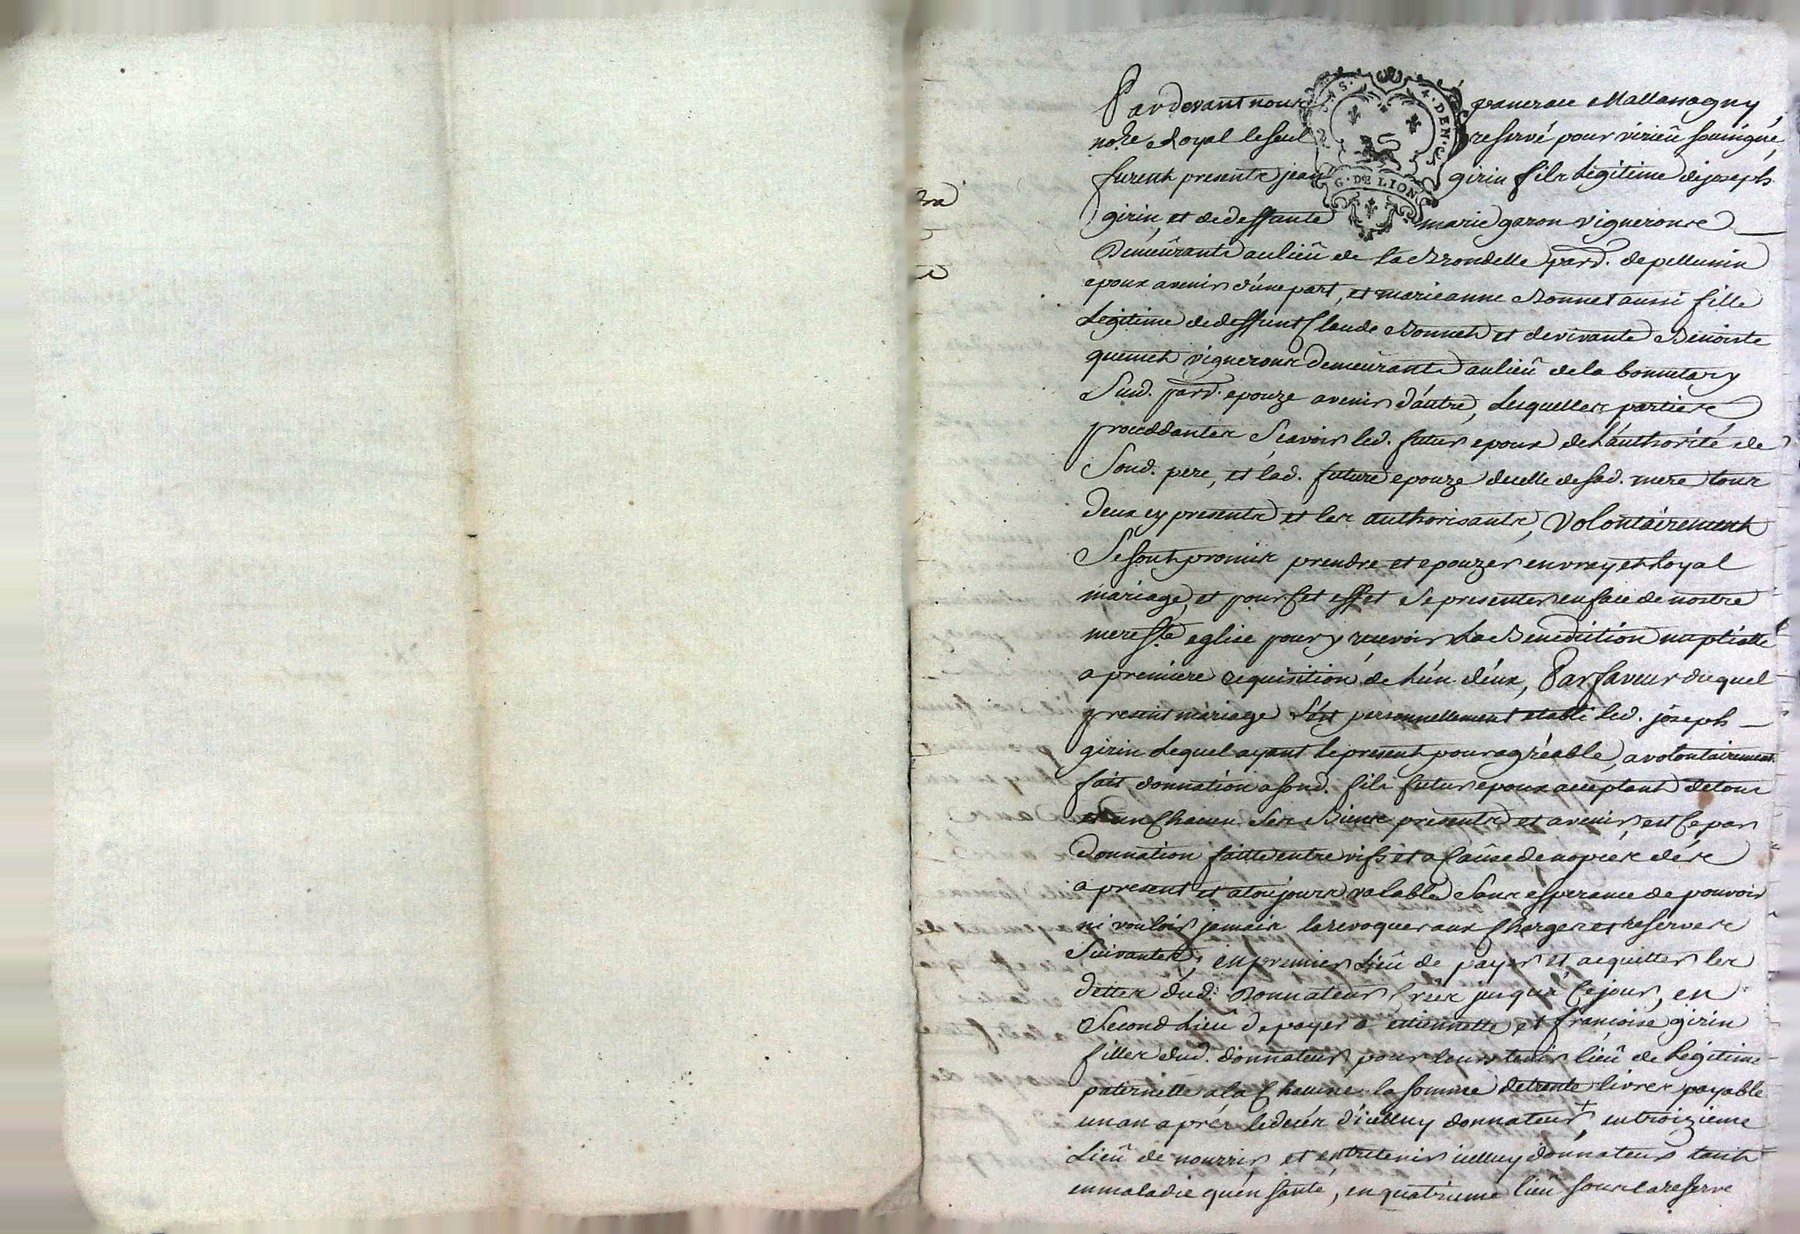 Pardevant nous pancrace Mallassagny
no.re Royal le seul reservé pour virieu soussigné
furent presents jean girin fils Légitime de joseph
girin, et de deffunte marie garon vignerons
Demeurants au lieû de La Brondelle parr. de pellussin
epoux avenir d'une part, et marie anne Bonnet aussi fille
Légitime de deffunt Claude Bonnet et de vivante Benoiste
quemet vignerons demeurants au lieû de la
Sud. parr. epouze avenir d'autre, Lesquelles parties
proceddantes Scavoir led. futur epoux de L'authorité de
Sond. pere, et lad. future epouze decelle de sad. mere tous
deux cy presents et les authorisants, volontairement
Se sont promis prendre et epouzer en vray et Loyal
mariage, et pour Cet effet se presenter en face de nostre
mere Ste eglise pour y recevoir La Benediction nuptialle
a premiere requisition de L'un d'eux, Par faveur duquel
present mariage s'est personnellement etabli led. joseph
girin Lequel ayant le present pour agréable, a volontairement
fait donnation a sond. fils futur epoux acceptant de tous
et un Chacun Ses Biens presents et avenir, et Ce par
Donnation faitte entre vifs et a Cause de nopces dés
a present et a toujours valable Sans esperance de pouvoir
ni vouloir jamais la revoquer aux Charges et reserves
Suivantes, en premier Lieû de payer et acquitter les
dettes dud. Donnateur Crées jusqu'a Ce jour, en
Second Lieû de payer a etiennette et francoise girin
filles dud. donnateur pour leur tenir lieû de Légitime
paternelle a la Chacune la somme de trente livres payable
un an aprés le decés d'icelluy donnateur +, en troizieme
Lieû de nourrir et entretenir icelluy donnateur tant
en maladie qu'en santé, en quatrieme lieû sous la reserve
2 S. 4. DEN.
G. DE LION